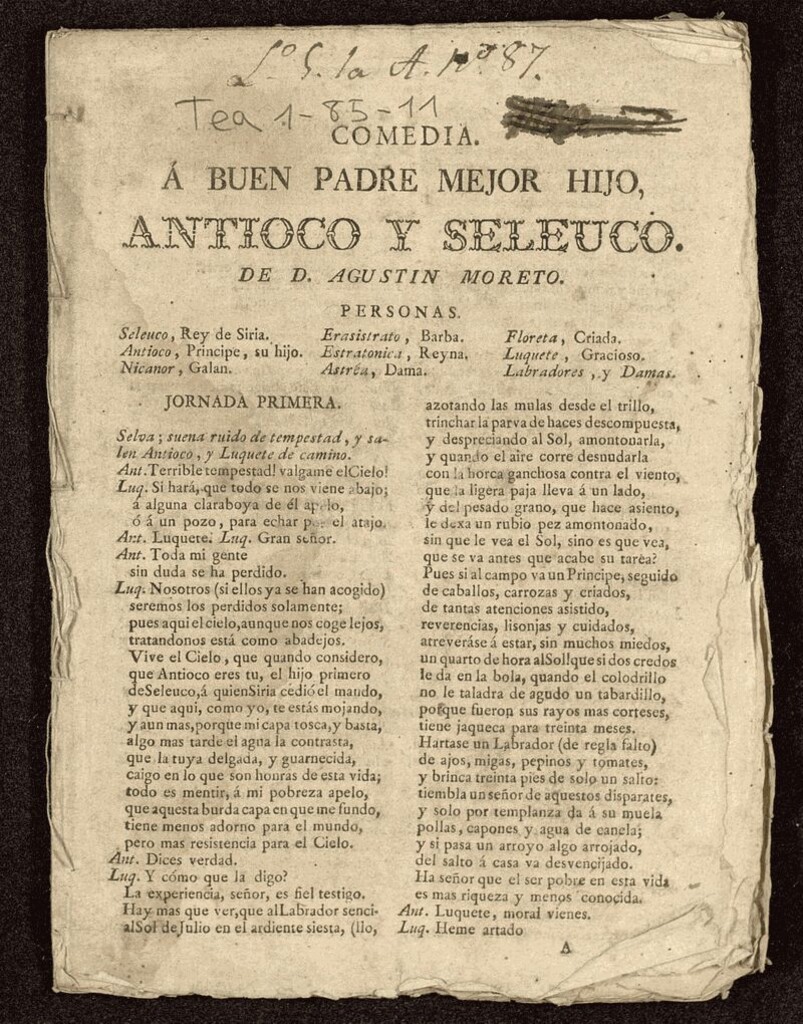 Lº 5. la A. Nº 87.
Tea 1-85-11
COMEDIA.
Á BUEN PADRE MEJOR HIJO,
ANTIOCO Y SELEUCO.
DE D. AGUSTIN MORETO.
PERSONAS.
Seleuco, Rey de Siria.
Antioco, Principe, su hijo.
Nicanor, Galan.
Erasistrato, Barba.
Estratonica, Reyna.
Astréa, Dama.
Floreta, Criada.
Luquete, Gracioso.
Labradores, y Damas.
JORNADA PRIMERA.
Selva; suena ruido de tempestad, y sa-
len Antioco, y Luquete de camino.
Ant. Terrible tempestad! valgame el Cielo!
Luq. Si hará, que todo se nos viene abajo;
á alguna claraboya de él apelo,
ó á un pozo, para echar por el atajo.
Ant. Luquete. Luq. Gran señor.
Ant. Toda mi gente
sin duda se ha perdido.
Luq. Nosotros (si ellos ya se han acogido)
seremos los perdidos solamente;
pues aqui el cielo, aunque nos coge lejos,
tratandonos está como abadejos.
Vive el Cielo, que quando considero,
que Antioco eres tu, el hijo primero
de Seleuco, á quien Siria cedió el mando,
y que aqui, como yo, te estás mojando,
y aun mas, porque mi capa tosca, y basta,
algo mas tarde el agua la contrasta,
que la tuya delgada, y guarnecida,
caigo en lo que son honras de esta vida;
todo es mentir, á mi pobreza apelo,
que aquesta burda capa en que me fundo,
tiene menos adorno para el mundo,
pero mas resistencia para el Cielo.
Ant. Dices verdad.
Luq. Y cómo que la digo?
La experiencia, señor, es fiel testigo.
Hay mas que ver, que al Labrador senci-
al Sol de Julio en el ardiente siesta, (llo,
azotando las mulas desde el trillo,
trinchar la parva de haces descompuesta,
y despreciando al Sol, amontonarla,
y quando el aire corre desnudarla
con la horca ganchosa contra el viento,
que la ligera paja lleva á un lado,
y del pesado grano, que hace asiento,
le dexa un rubio pez amontonado,
sin que le vea el Sol, sino es que vea,
que se va antes que acabe su tarèa?
Pues si al campo va un Principe, seguido
de caballos, carrozas y criados,
de tantas atenciones asistido,
reverencias, lisonjas y cuidados,
atreveráse á estar, sin muchos miedos,
un quarto de hora al Sol! que si dos credos
le da en la bola, quando el colodrillo
no le taladra de agudo un tabardillo,
porque fueron sus rayos mas corteses,
tiene jaqueca para treinta meses.
Hartase un Labrador (de regla falto)
de ajos, migas, pepinos y tomates,
y brinca treinta pies de solo un salto:
tiembla un señor de aquestos disparates,
y solo por templanza da á su muela
pollas, capones y agua de canela;
y si pasa un arroyo algo arrojado,
del salto á casa va desvencijado.
Ha señor que el ser pobre en esta vida
es mas riqueza y menos conocida.
Ant. Luquete, moral vienes.
Luq. Heme artado
A